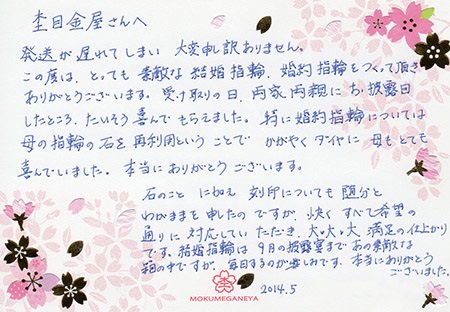 杢目金屋さんへ
発送が遅れてしまい 大変申し訳ありません。
この度は、とっても素敵な結婚指輪、婚約指輪をつくって頂き
ありがとうございます。受け取りの日、両家両親にお披露目
したところ、たいそう喜んでもらえました。特に婚約指輪については
母の指輪の石を再利用ということで かがやくダイヤに 母もとても
喜んでいました。本当にありがとうございます。
石のこと に加え 刻印についても 随分と
わがままを申したのですが、快く すべて希望の
通りに 対応していただき、大・大・大 満足の仕上がり
です。結婚指輪は 9月の披露宴まであの素敵な
箱の中ですが、毎日するのが楽しみです。本当にありがとう
ございました。
MOKUMEGANEYA
2014.5